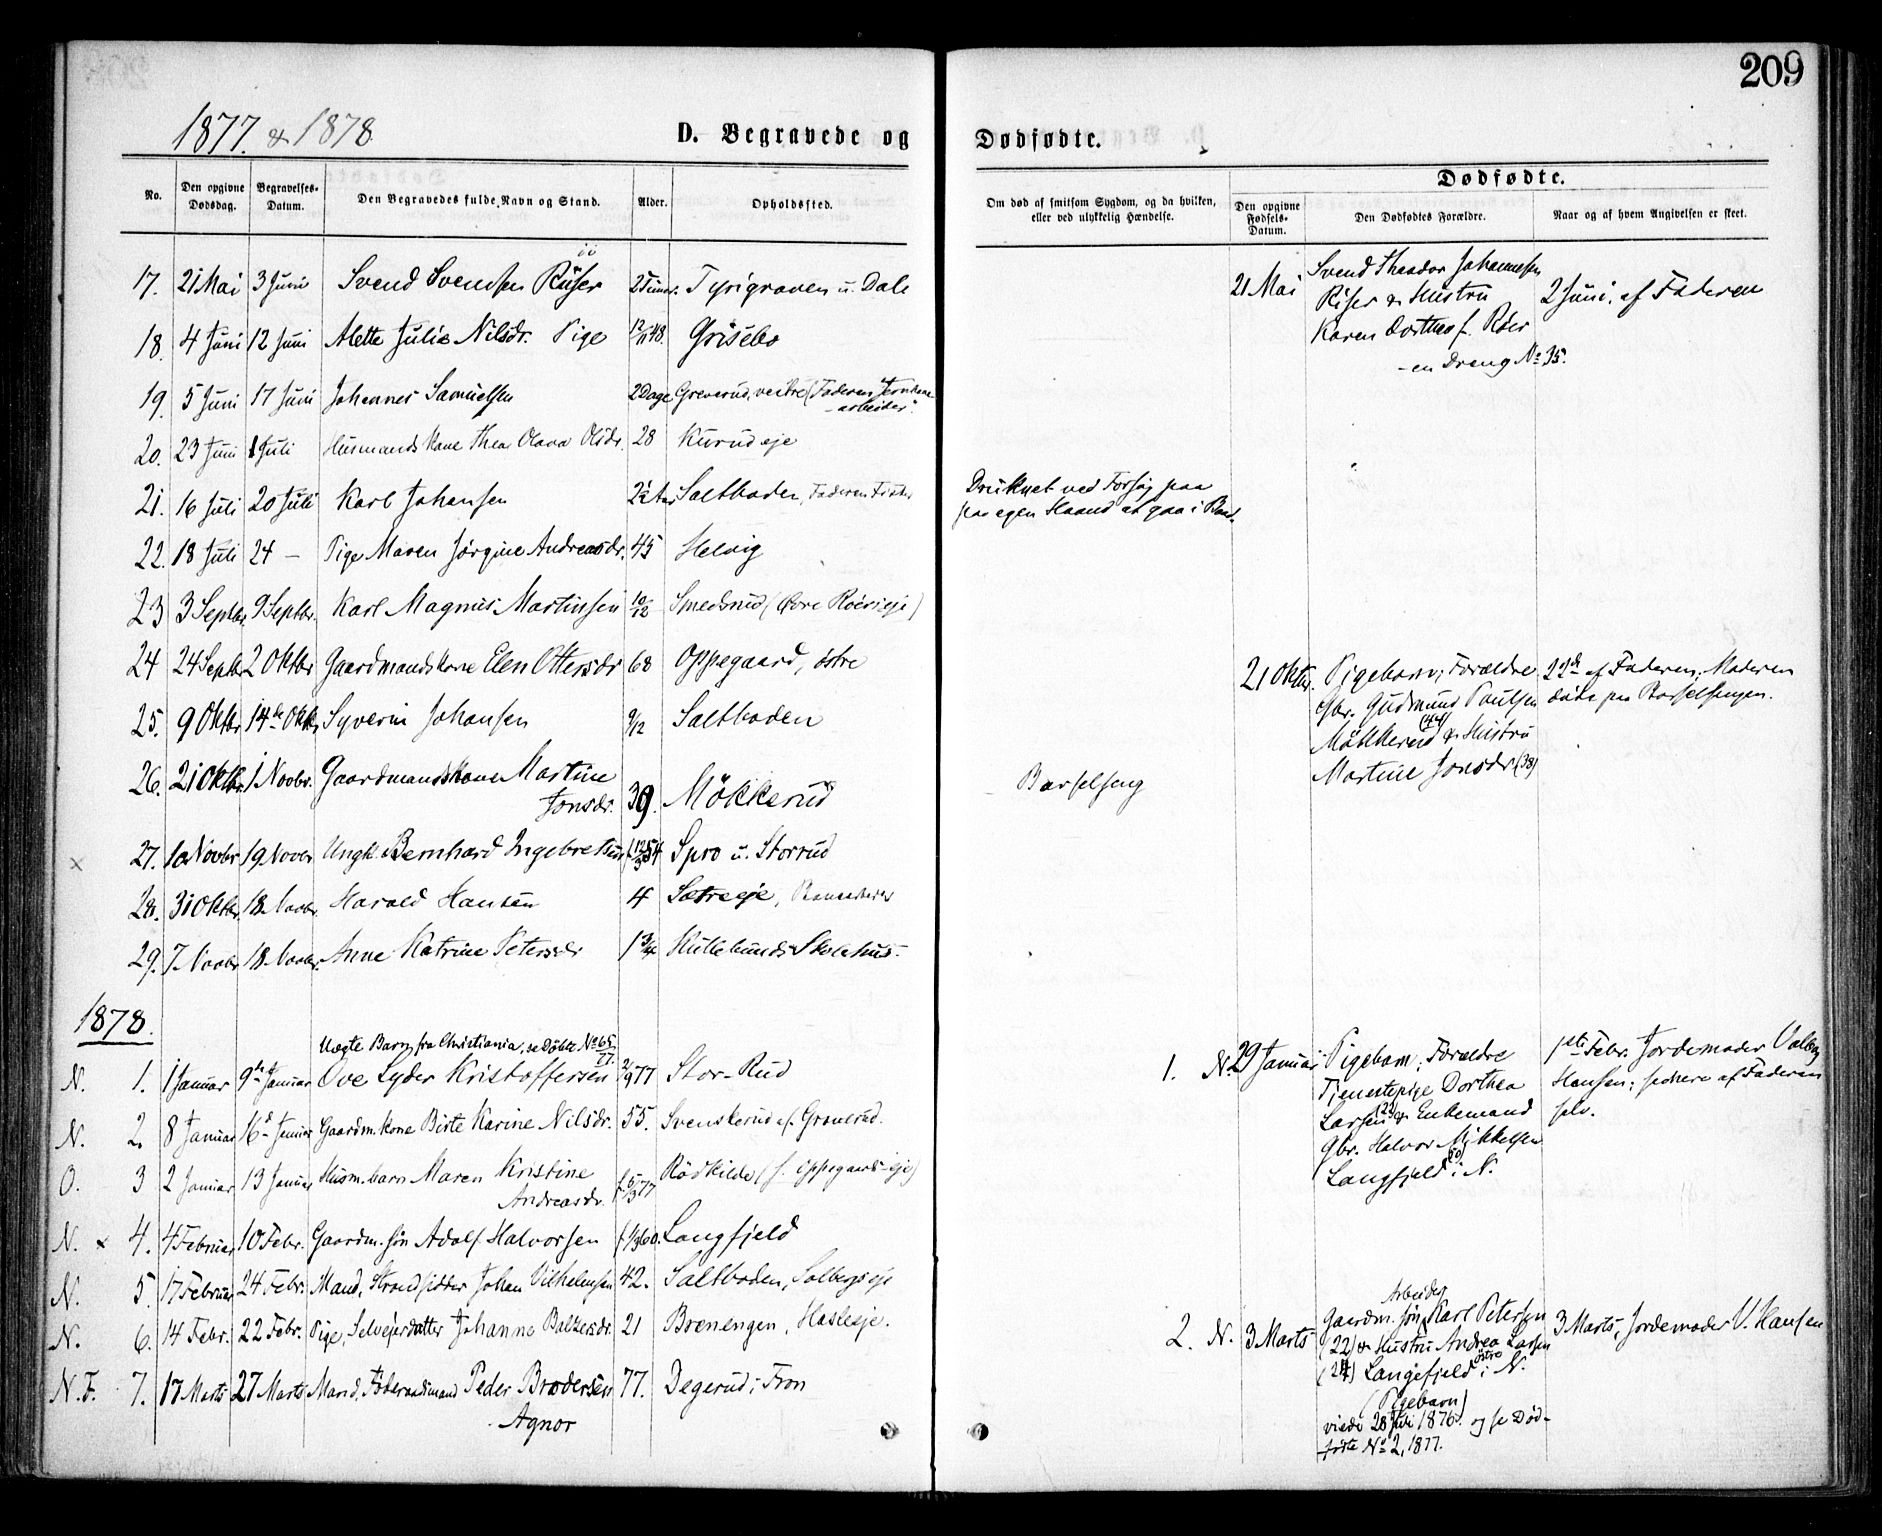 209
1877. & 1878
D. Begravede og Dødfødte.
No.
Den opgivne Dødsdag.
Begravelses-Datum.
Den Begravedes fulde Navn og Stand.
Alder.
Opholdssted.
Om død af smitsom Sygdom, og da hvilken, eller ved ulykkelig Hændelse.
Dødfødte.
Den opgivne Fødsels-Datum.
Den Dødfødtes Forældre.
Naar og af hvem Angivelsen er skeet.
17. 21 Mai 3 Juni Svend Svendsen Riiser 2 Timer. Tyrigraven u. Dale
21 Mai Svend Theodor Johannesen
Riser & Hustru 2 Juni, af Faderen
Karen Dorthea f. Röer
- en Dreng No 35.
18. 4 Juni 12 Juni Alette Julie Nilsdr. Pige 12/11 48. Grisebo
19. 5 Juni 17 Juni Johannes Samuelsen 2 Dage Greverud, vestre (Faderen Jernbane
-arbeider".
20. 23 Juni 1 Juli Husmandskone Thea Olava Olsdr. 28 Kurud eje
21. 16 Juli 20 Juli Karl Johansen 2½ Aar Saltboden, Faderen
Druknet ved Forsøg paa
paa egen Haand at gaa i Baad.
22. 18 Juli 24 - Pige Maren Jörgine Andreasdr. 45 Helvig
23 3 Septbr. 9 Septbr. Karl Magnus Martinsen 10/12 Smedsrud (Övre Roerseje)
24 24 Septbr 2 Oktbr Gaardmandskone Elen Ottersdr 68 Oppegaard, östre
21 Oktbr. Pigebarn; Forældre 22de af Faderen, Moderen
Gbr. Gudmund Paulsen döde paa Barselsengen.
(44)
Mökkerud & Hustru
Martine Jonsdr (38)
25. 9 Oktbr 14de Oktbr Syverin Johansen 9/12 Saltboden
26. 21 Oktbr. 1 Novbr. Gaardmandskone Martine
Jonsdr. 39. Mökkerud
Barselseng
× 27. 10 Novbr 19. Novbr Ungk. Bernhard Ingebretsen 54 Spro u. Storrud
28. 31 Oktbr. 18. Novbr. Harald Hansen 4 Sætreeje,
29. 7. Novbr 18. Novbr. Anne Katrine Petersdr 1 3/4 Hullebunds Skolehus.
1878.
Uægte Barn fra Christiania, se Döbte No 65/77.
N. 1. 1 Januar 9de Januar Ove Lyder Kristoffersen 2/9 77 Stor-Rud
1. N. 29 Januar Pigebarn; Forældre 1ste Febr. Jordemoder Valborg
Tjenestepige Dorthea Hansen; senere af Faderen
Larsen (23) & Enkemand selv.
Gbr. Halvor Mikkelsen
(50)
Langfjeld i N.
N. 2. 8 Januar 16de Januar Gaardm.kone Birte Karine Nilsdr. 55. Svenskerud af Granerud.
O. 3 2 Januar 13 Januar Husm.barn Maren Kristine
Andreasdr. f. 5/3 77 Rödkilde (f. Oppegaards eje)
N. × 4. 4 Februar 10 Febr. Gaardm. sön Adolf Halvorsen f. 1/3 60. Langfjeld
N. 5. 17 Februar 24 Febr. Mand, Strandsidder Johan Vilhelmsen 42. Saltboden, Solbergseje
N. 6. 14 Febr. 22 Febr. Pige, Selvejerdatter Johanne Baltzersdr. 21 Brenengen, Hasleeje.
Arbeider
2. N. 3 Marts Gaardm. sön Karl Petersen 3 Marts, Jordemoder V. Hansen
(22) & Hustru Andrea Larsen
(24) Langfjeld östre i N.
(Pigebarn)
viede 28 Juli 1876. og se Död-
födte No 2, 1877.
N. F. 7. 17 Marts 27 Marts Mand, Föderaadsmand Peder Brodersen 77. Degerud i Fron
Agnor